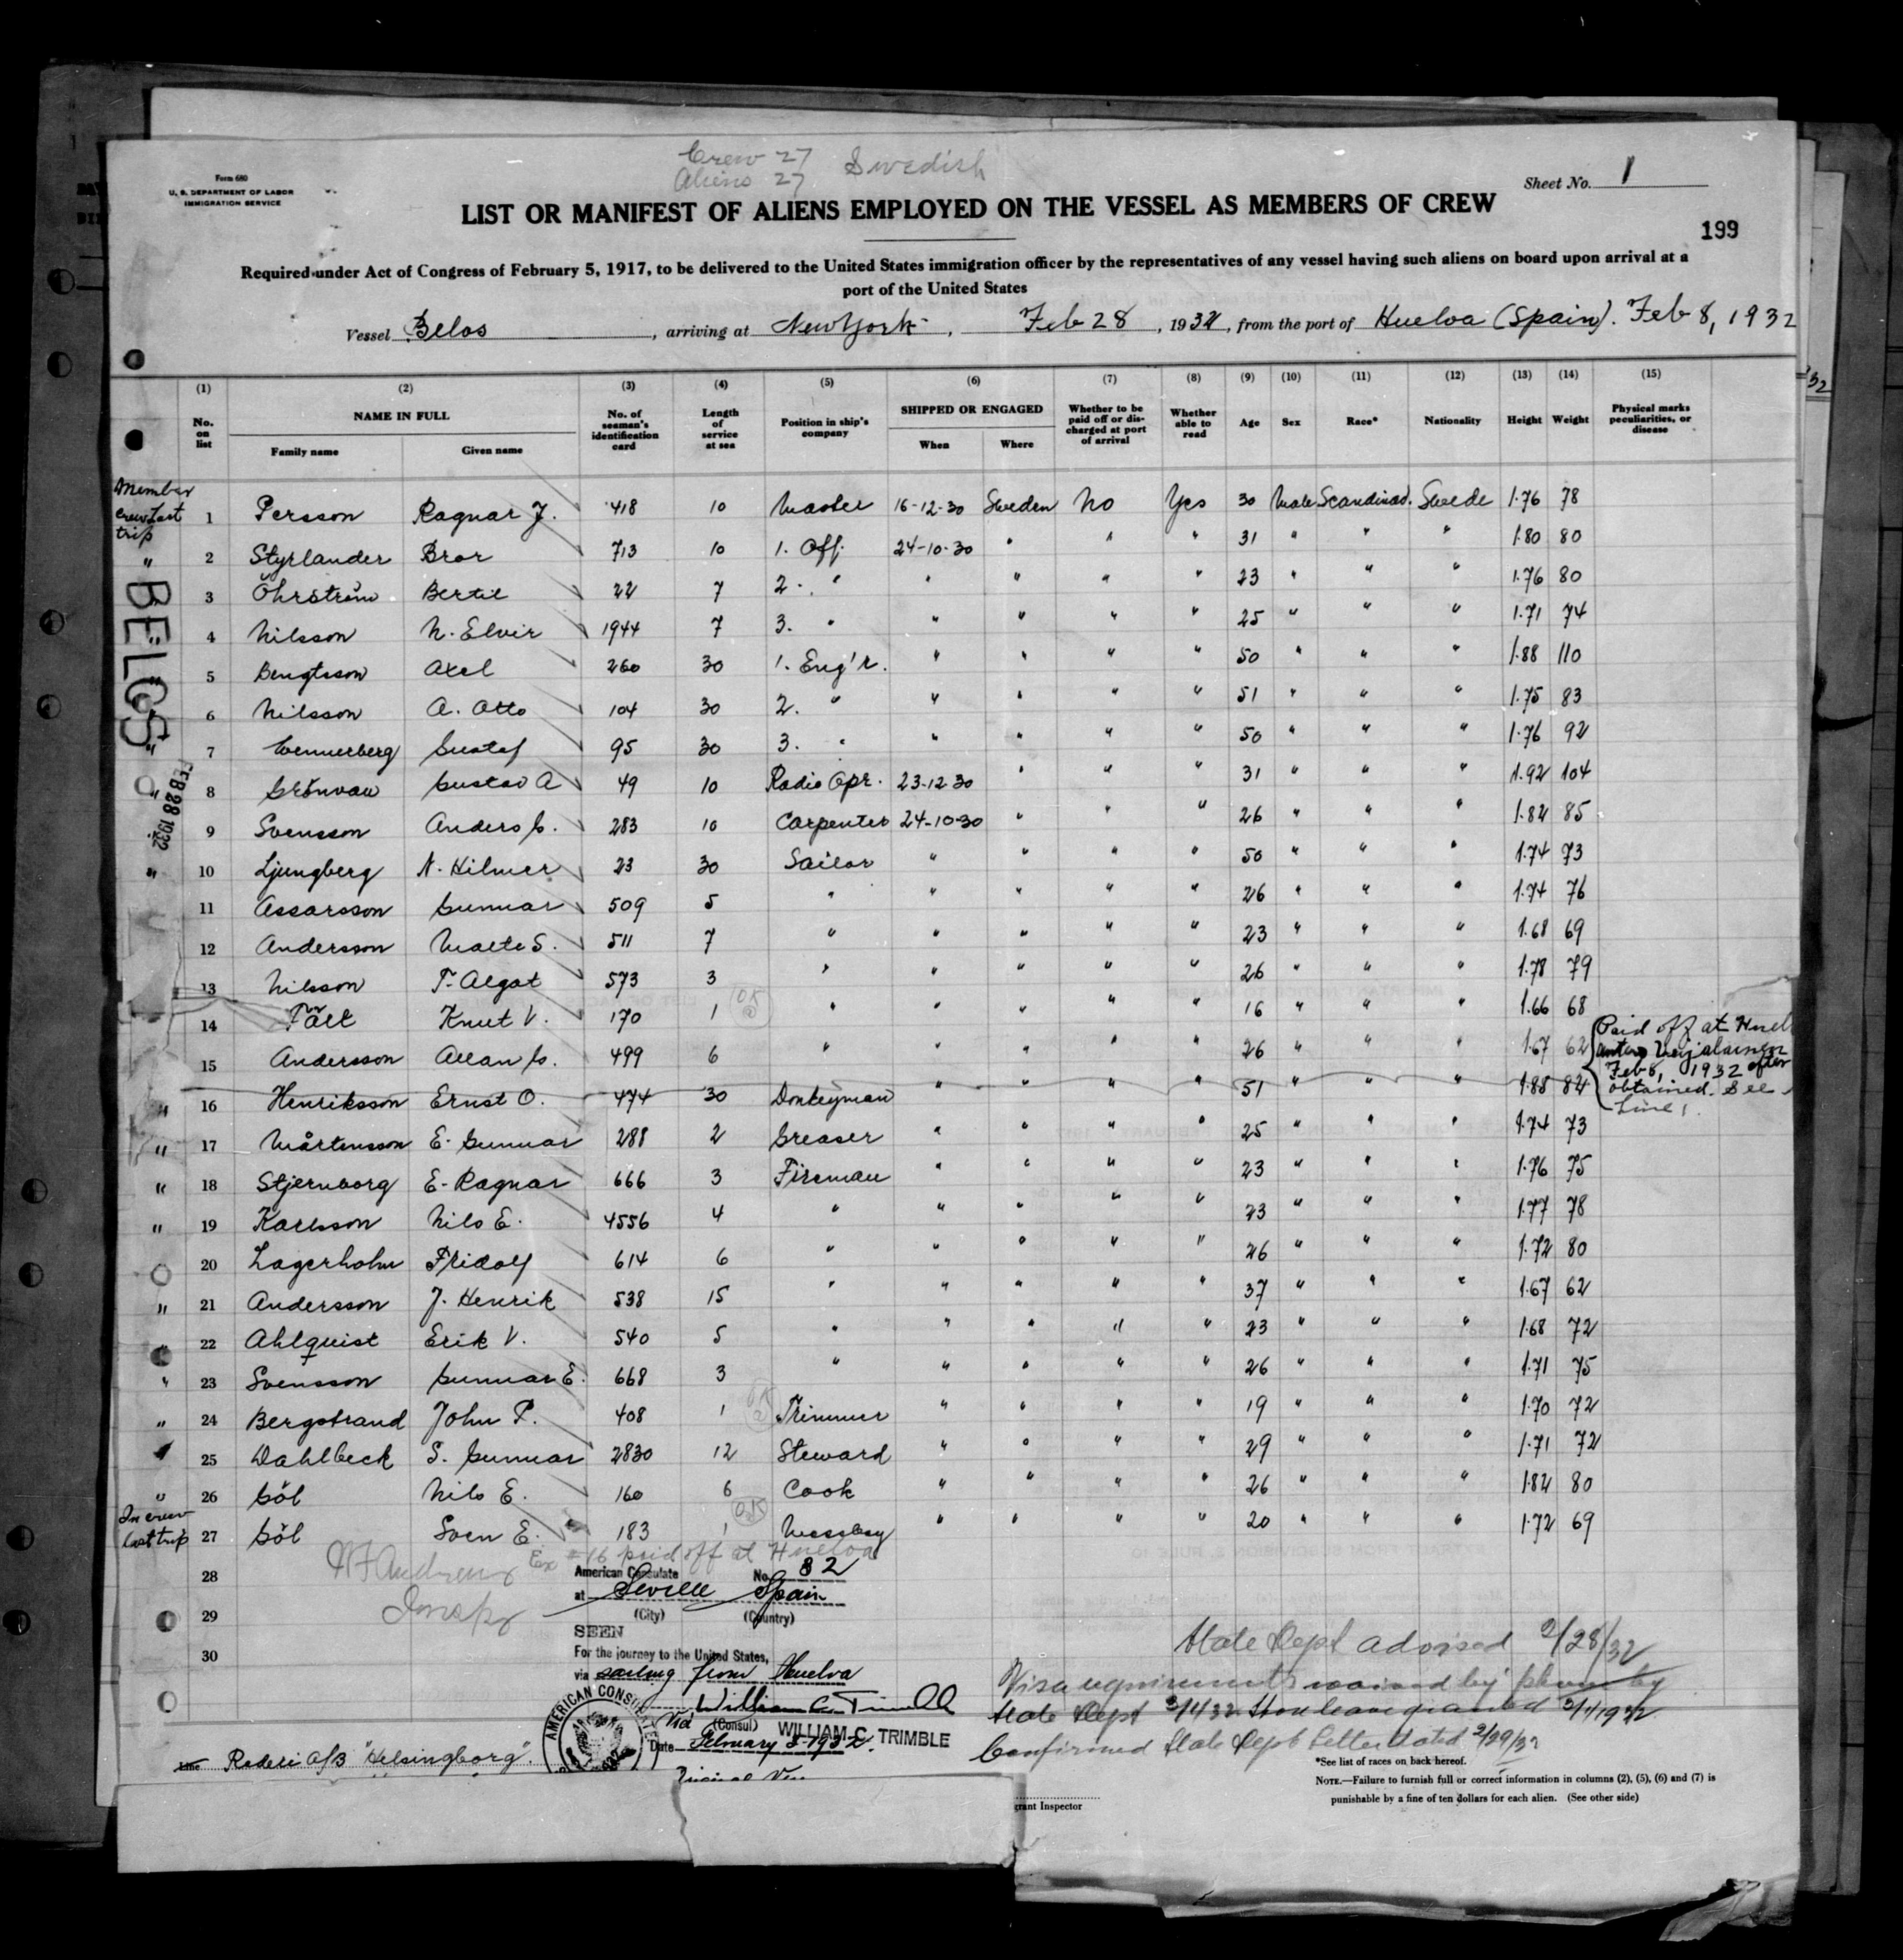 Crew 27 Swedish
Aliens 27
Form 680
U. S. DEPARTMENT OF LABOR
IMMIGRATION SERVICE
Sheet No. 1
LIST OR MANIFEST OF ALIENS EMPLOYED ON THE VESSEL AS MEMBERS OF CREW
199
Required under Act of Congress of February 5, 1917, to be delivered to the United States immigration officer by the representatives of any vessel having such aliens on board upon arrival at a
port of the United States
Vessel Belos, arriving at New York, Feb 28, 1932, from the port of Huelva (Spain). Feb 8, 1932
(1) (2) (3) (4) (5) (6) (7) (8) (9) (10) (11) (12) (13) (14) (15)
No. on list NAME IN FULL Family name Given name No. of seaman's identification card Length of service at sea Position in ship's company SHIPPED OR ENGAGED When Where Whether to be paid off or discharged at port of arrival Whether able to read Age Sex Race* Nationality Height Weight Physical marks peculiarities, or disease
Member crew last trip
BELOS
FEB 28 1932
1 Persson Ragnar J. 418 10 Master 16-12-30 Sweden No Yes 30 Male Scandinav. Swede 1.76 78
" 2 Styrlander Bror 713 10 1. Off. 24-10-30 " " " 31 " " " 1.80 80
3 Öhrström Bertil 22 7 2. " " " " " 23 " " " 1.76 80
4 Nilsson N. Elvir 1944 7 3. " " " " " 25 " " " 1.71 74
5 Bengtsson Axel 260 30 1. Eng'r. " " " " 50 " " " 1.88 110
6 Nilsson A. Otto 104 30 2. " " " " " 51 " " " 1.75 83
" 7 Wennerberg Gustaf 95 30 3. " " " " " 50 " " " 1.76 92
" 8 Grönvau Gustav A 49 10 Radio Opr. 23-12-30 " " " 31 " " " 1.92 104
9 Svensson Anders G. 283 10 Carpenter 24-10-30 " " " 26 " " " 1.82 85
" 10 Ljungberg N. Hilmer 23 30 Sailor " " " " 50 " " " 1.74 73
11 Assarsson Gunnar 509 5 " " " " " 26 " " " 1.74 76
12 Andersson Malte S. 511 7 " " " " " 23 " " " 1.68 69
13 Nilsson T. Algot 573 3 " " " " " 26 " " " 1.78 79
14 Tält Knut V. 170 1 OK " " " " " 16 " " " 1.66 68
15 Andersson Allan G. 499 6 " " " " " 26 " " " 1.67 62
" 16 Henriksson Ernst O. 474 30 Donkeyman " " " " 51 " " " 1.88 82
Paid off at Huel
Feb 8, 1932 after
obtained. See
Line 1.
" 17 Mårtensson E. Gunnar 288 2 Greaser " " " " 25 " " " 1.74 73
" 18 Stjernborg E. Ragnar 666 3 Fireman " " " " 23 " " " 1.76 75
" 19 Karlsson Nils E. 4556 4 " " " " " 23 " " " 1.77 78
20 Lagerholm Fridolf 614 6 " " " " " 26 " " " 1.72 80
" 21 Andersson J. Henrik 538 15 " " " " " 37 " " " 1.67 62
22 Ahlquist Erik V. 540 5 " " " " " 23 " " " 1.68 72
" 23 Svensson Gunnar E. 668 3 " " " " " 26 " " " 1.71 75
" 24 Bergstrand John P. 408 1 OK Trimmer " " " " 19 " " " 1.70 72
25 Dahlbeck S. Gunnar 2830 12 Steward " " " " 29 " " " 1.71 72
" 26 Göl Nils E. 160 6 Cook " " " " 26 " " " 1.82 80
In crew last trip 27 Göl Sven E. 183 1 OK Messboy " " " " 20 " " " 1.72 69
Ex #16 paid off at Huelva
28
29
30
American Consulate No. 82
at Seville Spain
(City) (Country)
SEEN
For the journey to the United States,
via sailing from Huelva
William C. Trimble
(Consul) WILLIAM C. TRIMBLE
Date February 8-1932.
AMERICAN CONSULATE
State Dept advised 2/28/32
Visa requirements waived by phone by
State Dept 3/1/32. Shore leave granted 3/1/1932
Confirmed State Dept Letter dated 2/29/32
Line Rederi A/B "Helsingborg".
*See list of races on back hereof.
NOTE.—Failure to furnish full or correct information in columns (2), (5), (6) and (7) is
punishable by a fine of ten dollars for each alien. (See other side)
grant Inspector